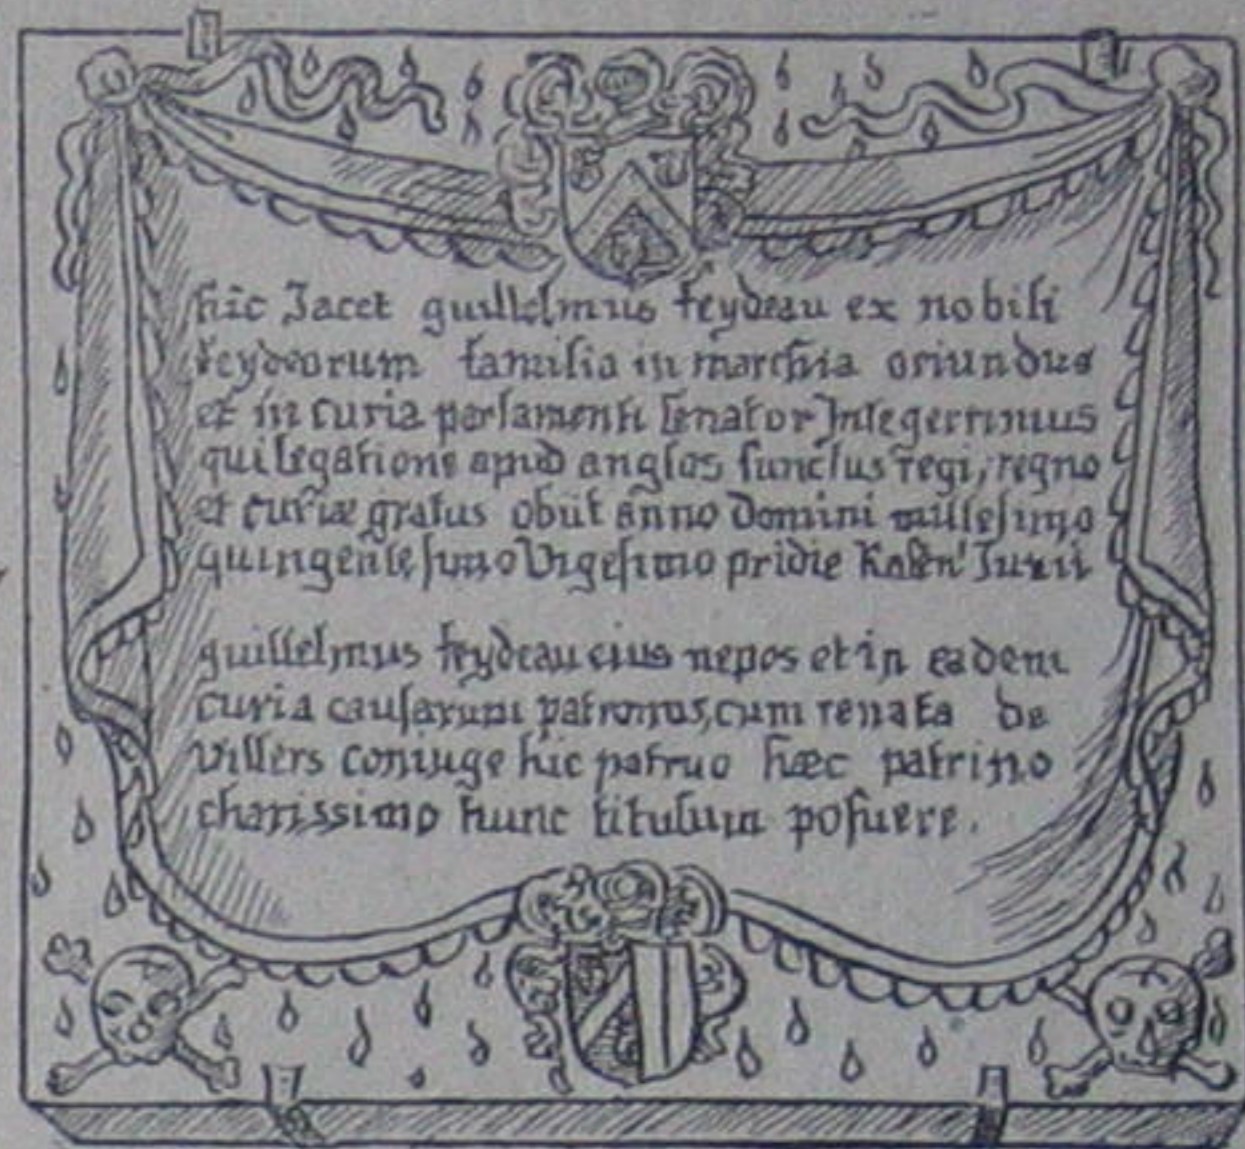 hic Jacet guillelmus feydeau ex nobili
feydeorum familia in marchia oriundus
et in curia parlamenti senator Integerrimus
qui legatione apud anglos functus regi, regno
et curiæ gratus obiit anno domini millesimo
quingentesimo Vigesimo pridie Kalen' Junii
guillelmus feydeau eius nepos et in eadem
curia causarum patronus, cum renata de
villers coniuge hic patruo hæc patrimo
charissimo hunc titulum posuere.